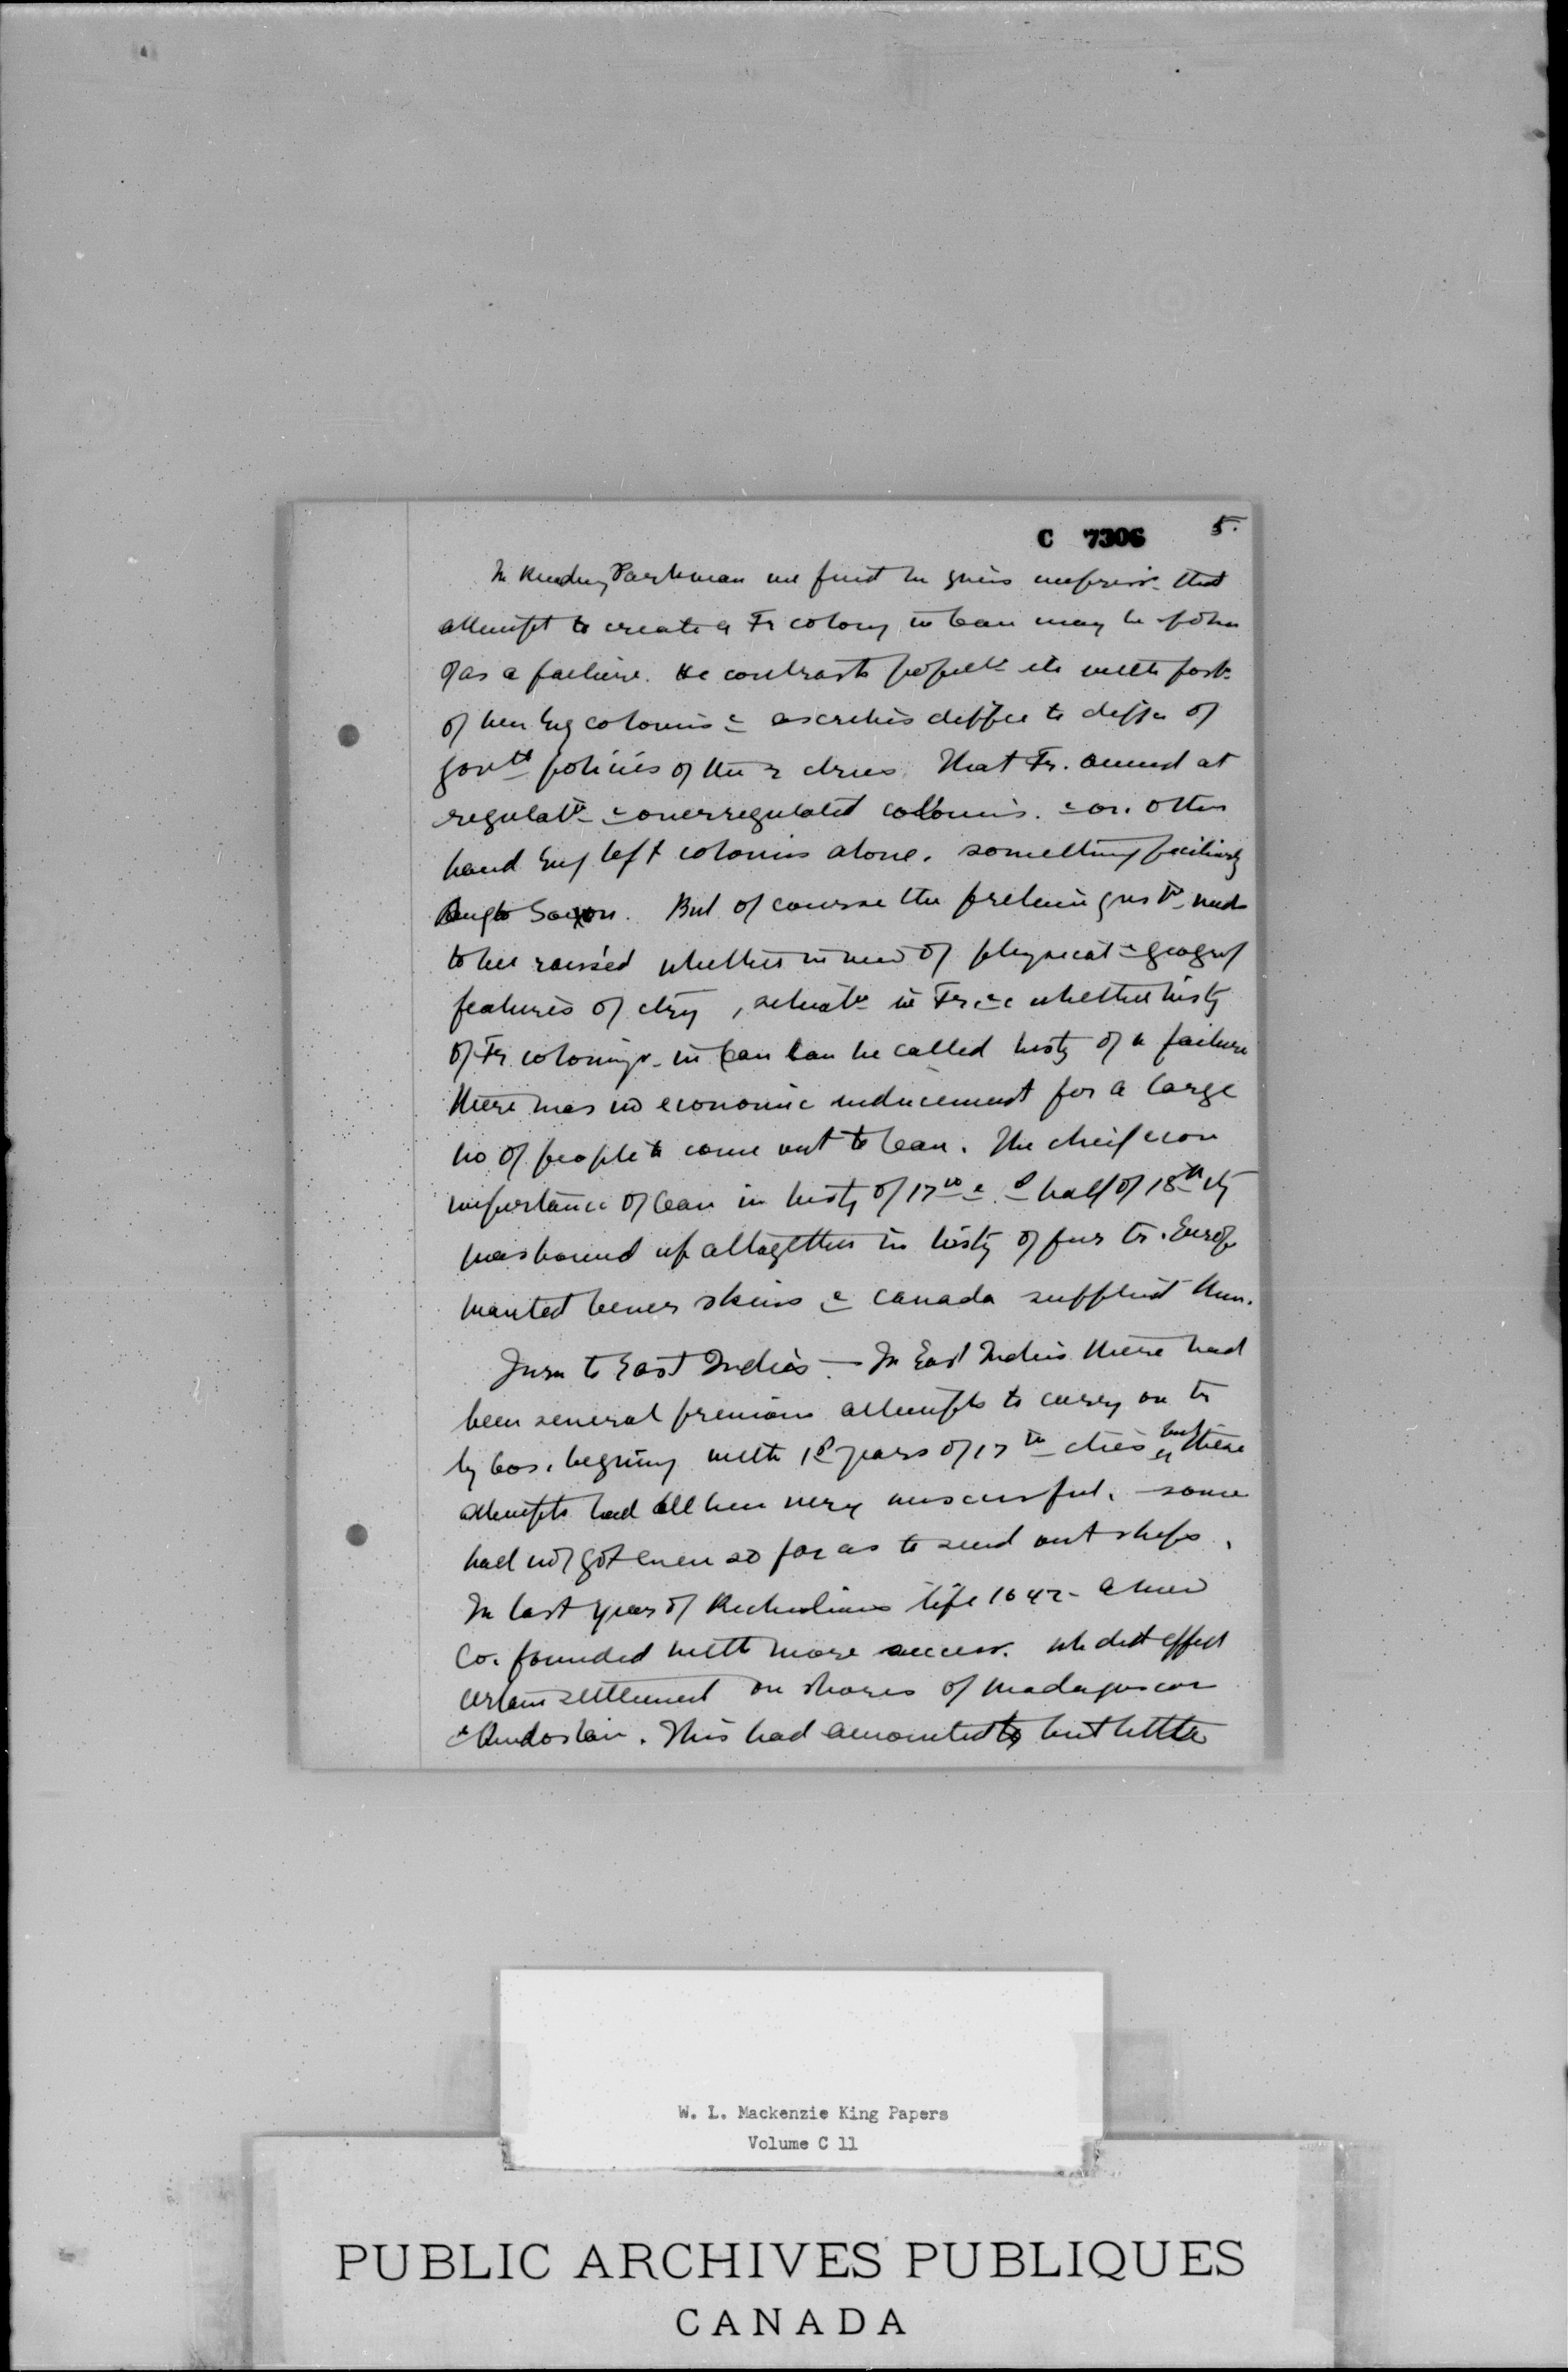 C 7306 5.
In Reading Parkman we find he gives impress. that
attempt to create a Fr colony in Can may be spoken
of as a failure. He contrasts populn etc with
of new Eng colonies & ascribes diffce to diffce of
govtl policies of the 2 ctries. That Fr. aimed at
regulatn & overregulated colonies. & on. other
hand Eng left colonies alone. something peculiarly
Anglo Saxon. But of course the prelim questn needs
to be raised whether in view of physical & geogrl
features of ctry, situatn in Frce & whether histy
of Fr. colonizn. in Can can be called histy of a failure
there was no economic inducement for a large
no of people to come out to Can. The chief econ
importance of Can in histy of 17th & 1st half of 18th cty
was bound up altogether in histy of fur tr. Europe
wanted bever skins & Canada supplied them.
Turn to East Indies — In East Indies there had
been several previous attempts to carry on tr
by Cos. begining with 1st years of 17th cties but these
attempts had all been very unsuccessful. some
had not got even so far as to send out ships.
In last year of Richelieus life 1642 - a new
Co. founded with more success. wh did effect
certain settlement on shores of Madagascar
& Hindostan. This had amounted to but little
W. L. Mackenzie King Papers
Volume C 11
PUBLIC ARCHIVES PUBLIQUES
CANADA